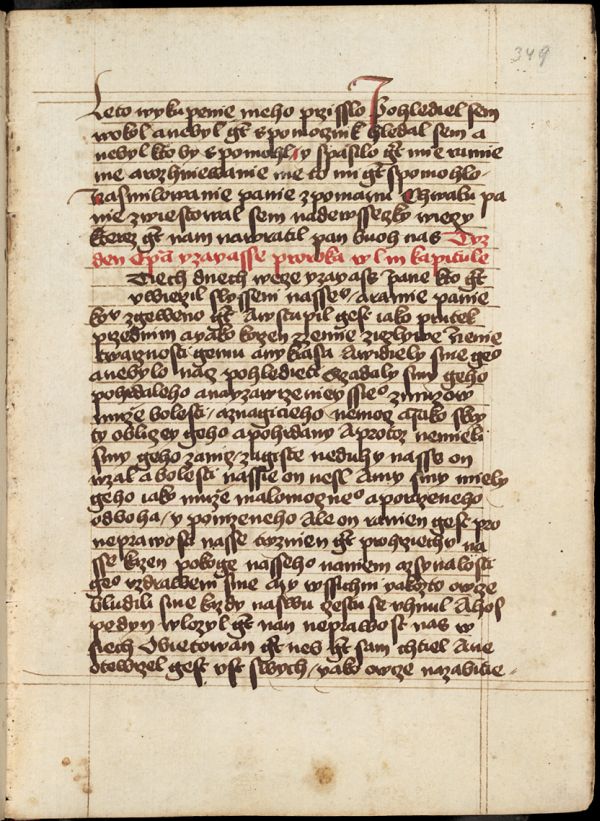 349
Leto wykupenie meho przisslo Pohlediel sem
wokol a nebyl gt spomoznik hledal sem a
nebyl kto by spomohl y spasilo gt mie ramie
me a rozhniewanie me to mi gt spomohlo
Nasmilowanie panie zpomanu Chwalu pa
nie zwiestowal sem nadewssezky wiezy
kterez gt nam nawratil pan buoh nas Tyz
den Epa yzayasse proroka w l iii kapitule
Tiech dnech wece yzayass Pane kto gt
vwierzil slysseni nasseo A ramie panie
komu zgeweno gt A wstupil gest iako prutek
przednim a yako korzen zzemie ziezliwe Nenie
twarznosti gemu any krasa A widiely sme geo
a nebylo nan pohledieti Ezadaly smy geho
pohrdaleho a nayzawrzenieyssieo zmuzow
muze bolesti a znagicieho nemoc a iako skry
ty obliczey geho a pohrdany A protoz nemieli
smy geho zaniez zagiste neduhy nasse on
wzal a bolesti nassie on nesl A my smy miely
geho iako muze malomoczneo a porazeneho
od boha y ponizeneho Ale on ranien gest pro
neprawosti nasse tryznien gt pro hrziechy na
sse kazen pokoge nasseho naniem a zsynalosti
geo vzdraweni sme My wssichni yakozto owcze
bludili sme kazdy naswu zestu se vhnul A hos
podyn wlozyl gt nan neprawost nas w
siech Obietowan gt neb gt sam chtiel A ne
otewrzel gest vst swych yako owcze nazabitie